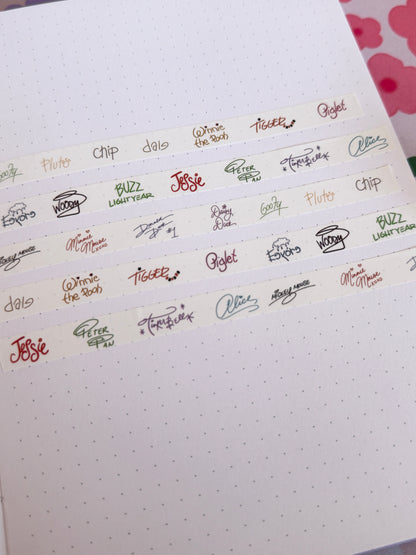 Goofy Pluto Chip dale Winnie the Pooh TIGGER Piglet
Eeyore WOODY BUZZ LIGHTYEAR Jessie PETER PAN TINKERBELL Alice
MICKEY MOUSE Minnie Mouse xoxo Donald Duck #1 Daisy Duck Goofy Pluto Chip
dale Winnie the Pooh TIGGER Piglet Eeyore WOODY BUZZ LIGHTYEAR
Jessie PETER PAN TINKERBELL Alice MICKEY MOUSE Minnie Mouse xoxo